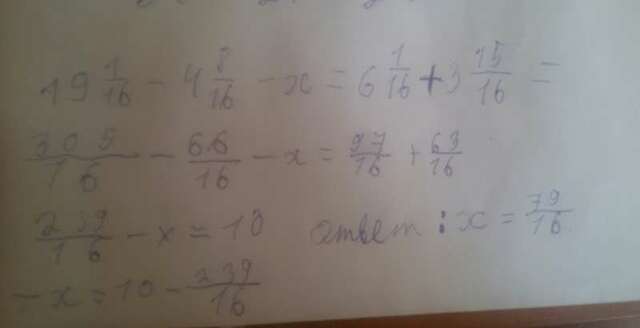 19 1/16 - 4 8/16 - x = 6 1/16 + 3 15/16 =
305/16 - 66/16 - x = 97/16 + 63/16
239/16 - x = 10 ответ: x = 79/16
-x = 10 - 239/16